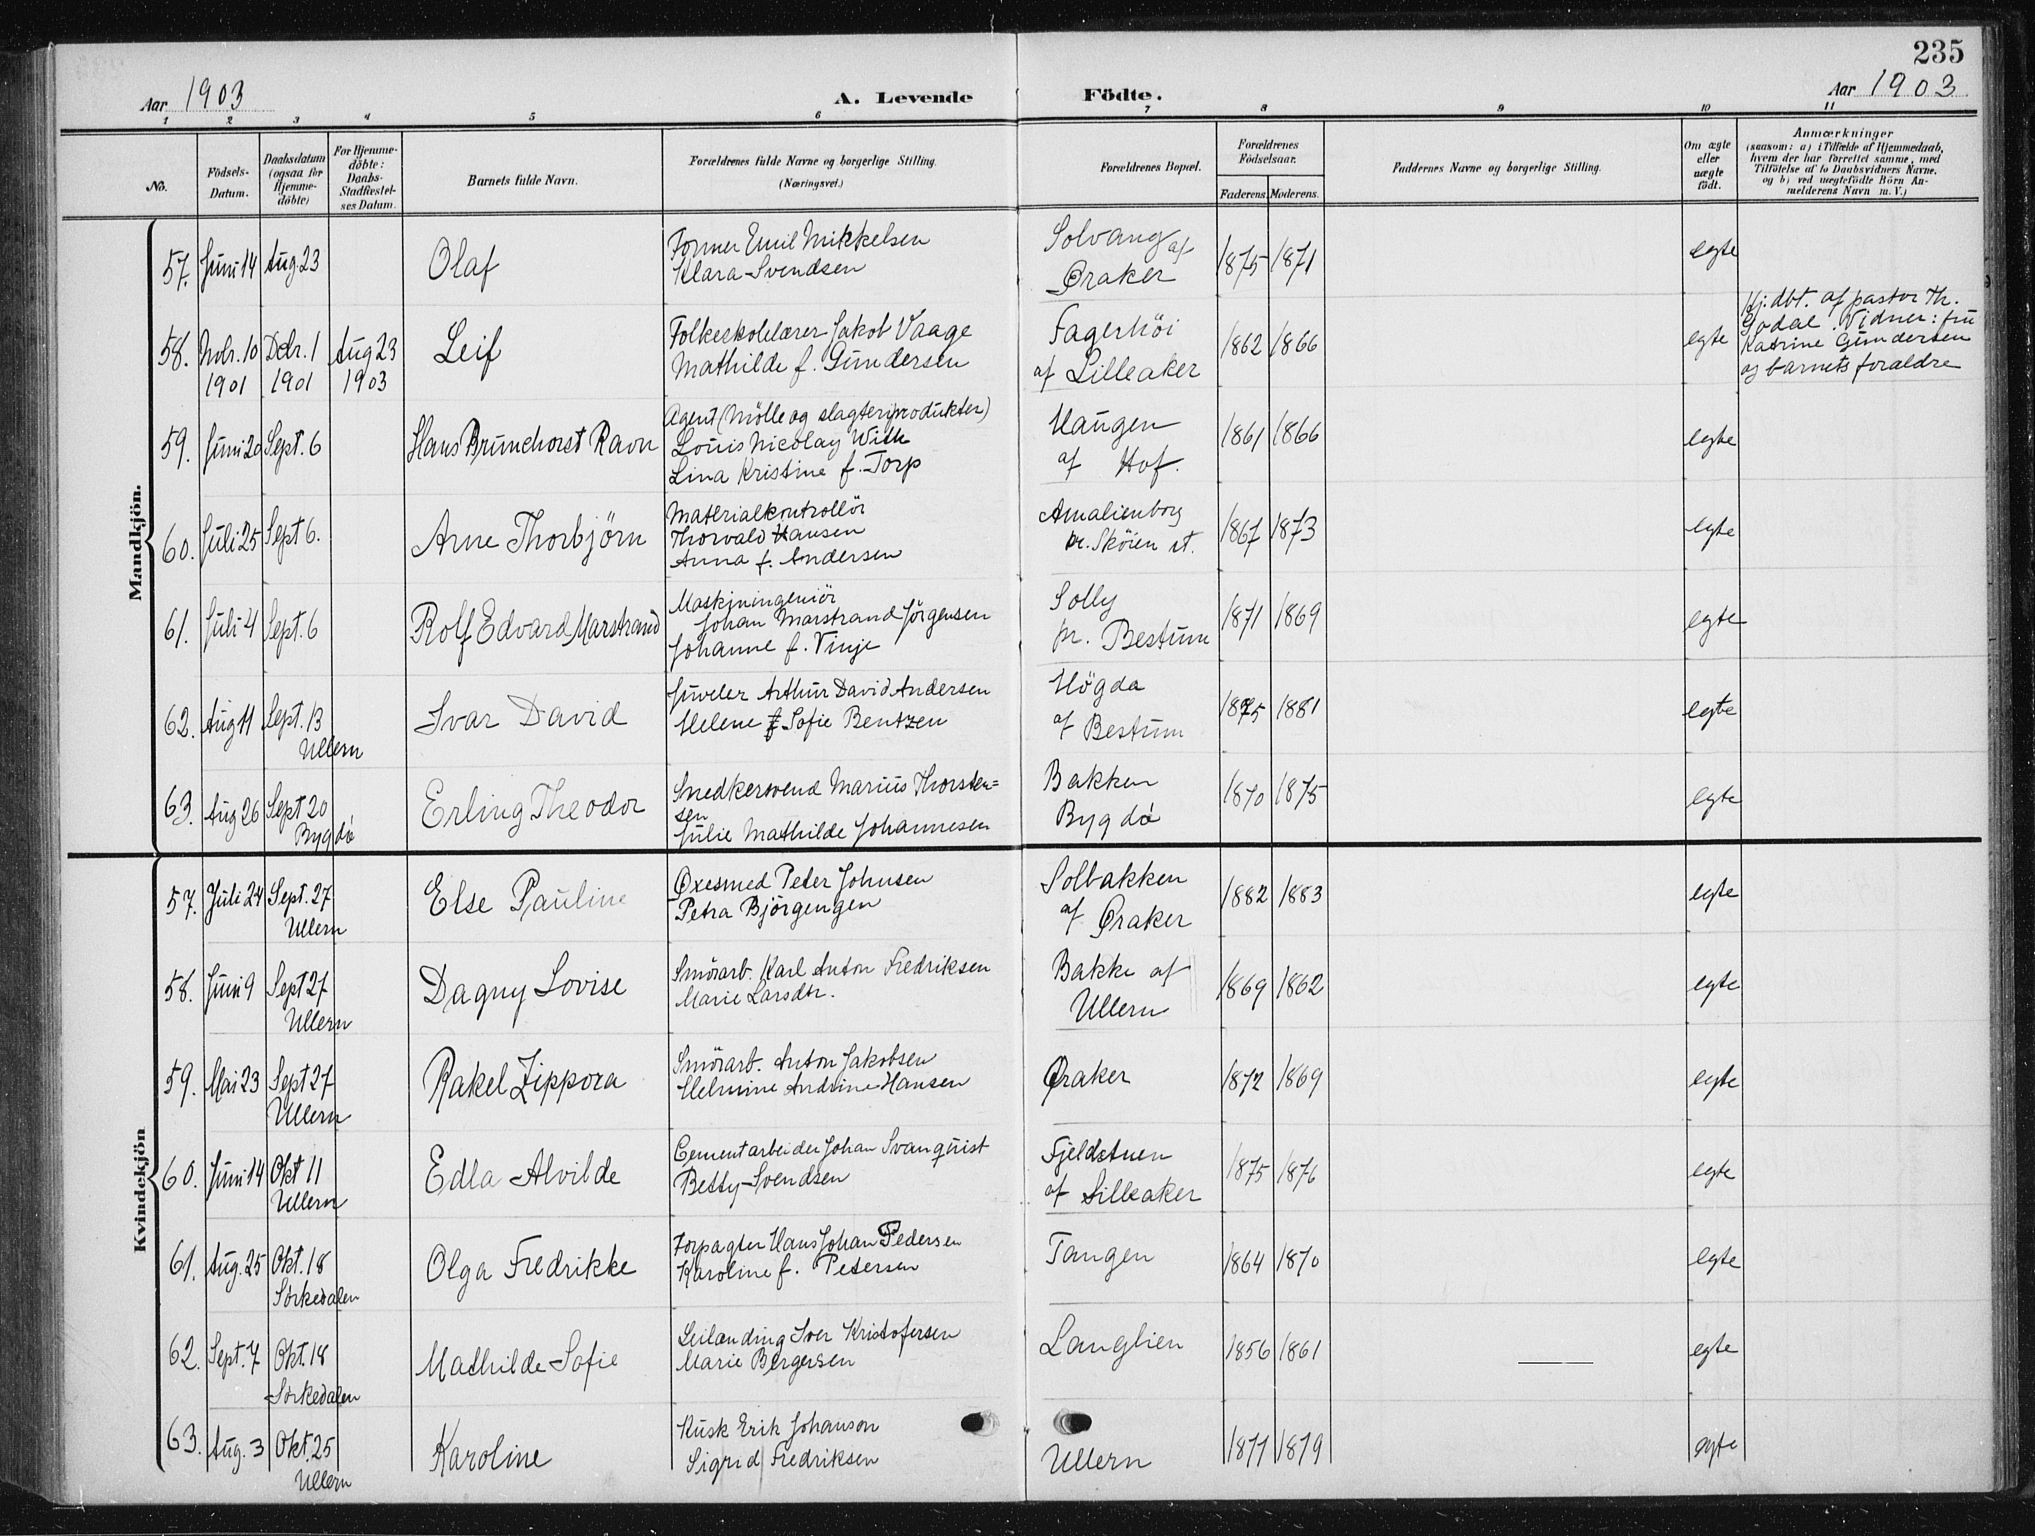 235
Aar 1903
A. Levende Födte.
Aar 1903
1 2 3 4 5 6 7 8 9 10 11
No.
Födsels-
Datum.
Daabsdatum
(ogsaa for
Hjemme-
döbte)
For Hjemme-
döbte:
Daabs-
Stadfæstel-
ses Datum.
Barnets fulde Navn.
Forældrenes fulde Navne og borgerlige Stilling.
(Næringsvei.)
Forældrenes Bopæl.
Forældrenes
Födselsaar.
Faderens. Moderens.
Faddernes Navne og borgerlige Stilling.
Om ægte
eller
uægte
födt.
Anmærkninger
(saasom: a) i Tilfælde af Hjemmedaab,
hvem der har forrettet samme, med
Tilföielse af to Daabsvidners Navne,
og b) ved uægtefödte Börn An-
melderens Navn m. V.)
Mandkjön.
57. Juni 14 Aug. 23 Olaf
Former Emil Mikkelsen
Klara Svendsen
Solvang af
Øraker
1875 1871 egte
58. Novbr. 10 Debr. 1 Aug 23
1901 1901 1903
Leif
Folkeskolelærer Jakob Vaage
Mathilde f. Gundersen
Fagerhöi
af Lilleaker
1862 1866 egte
Hj. dbt. af pastor Th.
Godal. Vidner: fru
Katrine Gundersen
og barnets foraldre
59. Juni 20 Sept. 6 Hans Brunchorst Ravn
Agent (Mölle og slagteriprodukter)
Louis Nicolay With
Lina Kristine f. Torp
Haugen
af Hof.
1861 1866 egte
60. Juli 25 Sept 6. Arne Thorbjörn
Materialkontrollör
Thorvald Hansen
Anna f. Andersen
Amalienborg
pr. Sköien st.
1867 1873 egte
61. Juli 4 Sept. 6 Rolf Edvard Marstrand
Maskiningeniör
Johan Marstrand Jörgensen
Johanne f. Vinje
Solly
pr. Bestum
1871 1869 egte
62. Aug 11 Sept. 13
Ullern
Ivar David
Juveler Arthur David Andersen
Helene f Sofie Bentzen
Högda
af Bestum
1875 1881 egte
63. Aug 26 Sept 20
Bygdö
Erling Theodor
Snedkersvend Marius Thorsten=
sen
Julie Mathilde Johannesen
Bakken
Bygdö
1870 1875 egte
Kvindekjön
57. Juli 24 Sept. 27
Ullern
Else Pauline
Öxesmed Peter Johnsen
Petra Björgengen
Solbakken
af Øraker
1882 1883 egte
58. Juni 9 Sept 27
Ullern
Dagny Lovise
Smörarb. Karl Anton Fredriksen
Marie Larsdtr.
Bakke af
Ullern
1869 1862 egte
59. Mai 23 Sept 27
Ullern
Rakel Zippora
Smörarb. Anton Jakobsen
Helmine Andrine Hansen
Øraker
1872 1869 egte
60. Juni 14 Okt 11
Ullern
Edla Alvilde
Cementarbeider Johan Svanquist
Betty Svendsen
Fjeldstuen
af Lilleaker
1875 1876 egte
61. Aug. 25 Okt. 18
Sörkedalen
Olga Fredrikke
Forpagter Hans Johan Pedersen
Karoline f. Petersen
Tangen
1864 1870 egte
62. Sept. 7 Okt. 18
Sörkedalen
Mathilde Sofie
Leilending Iver Kristofersen
Marie Bergersen
Langlien
1856 1861 egte
63. Aug. 3 Okt. 25
Ullern
Karoline
Kusk Erik Johanson
Sigrid Fredriksen
Ullern
1877 1879 egte